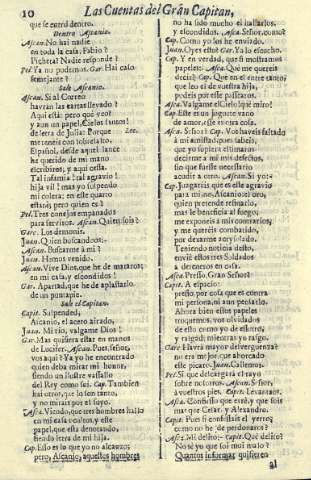 10 Las Cuentas del Gran Capitan,
que se entrò dentro.
Dentro Ascanio.
Ascan. No hai nadie
en toda la casa, Fabio?
Picheta! Nadie responde?
Pel. Ya no podemos. Gar. Hai caso
semejante?
Sale Ascanio.
Ascan. Si al Correo
havràn las cartas llevado?
Aqui està: pero què veo?
y aun un papel, Cielos santos!
de letra de Julia: Porque Lee.
me teneis con sobresalto,
Español, desde aquel lance
he querido de mi mano
escribiros, y aqui cessa.
Tal infamia! tal agravio!
hija vil! mas yo suspendo
mi colera: en este quarto
estarè; pero quien es?
Pel. Tres conejos empanados
para serviros. Ascan. Quien sois?
Garc. Los demonis.
Juan. Quien buscandoos:
Ascan. Buscarme à mi?
Juan. Hemos venido.
Ascan. Vive Dios, que he de mataros;
en mi casa, y escondidos!
Gar. Apartad, que he de aplastarlo
de un puntapie.
Sale el Capitan.
Capit. Suspended,
Ascanio, el acero airado.
Juan. Mi tio, valgame Dios!
Gar. Mas quisiera estar en manos
de Lucifer. Ascan. Pues, señor,
vos aqui? Ya yo he encontrado
quien deba mirar mi honor,
siendo un ilustre vassallo
del Rey como soi. Cap. Tambien
hai otros, que lo son tanto,
y no miran por el suyo.
Asc. Viendo, que tres hombres hallo
en mi casa ocultos, y este
papel, que està denotando,
siendo letra de mi hija.
Cap. Esso es lo que yo no alcanzo;
pero, Ascanio, aquestos hombres
no ha sido mucho el hallarlos,
y escondidos. Asca. Señor, como?
Cap. Como yo los he enviado.
Juan. Oyes esto? Gar. Ya lo escucho.
Cap. Y en verdad, que si mostramos
papeles: Asca. Què me quereis
decir? Cap. Que en el entre tanto,
que leo el de vuestra hija,
podeis por este passaros.
Asca. Valgame el Cielo! què miro?
Cap. Este es un juguete vano
de amor, esse es otra cosa.
Asca. Señor? Cap. Vos haveis faltado
à mi amistad; pues sabeis,
que yo supiera estimaros
decirme à mi mis defectos,
sin que fuesse necessario
acudir à otro. Ascan. Si yo:-
Cap. Juzgareis que es esse agravio
para mi: no, Ascanio: el oro,
quien pretende refinarlo,
mas le beneficia al fuego;
me exponeis à mis contrarios,
y me quereis combatido,
por dexarme acrysolado.
Teniendo noticia desto,
enviè estos tres Soldados
à deteneros en casa.
Asca. Presso, Gran Señor?
Capit. A espacio:
presso, por cosa que es contra
mi persona, ni aun pensarlo.
Ahora bien estos papeles
troquemos, vos olvidaos
de esto como yo de esotro,
y rasgad; mientras yo rasgo.
Garc. Havrà mayor desverguenza?
no era mejor, que ahorcado
esse picaro. Juan. Callemos.
Pel. Si que descargará el rayo
sobre nosotros. Ascan. Señor,
à vuestros pies. Capit. Levantaos.
Asca. Confiesso que erré, y que sois
mas que Cesar, y Alexandro.
Capit. Pues si confessais el yerro;
como no he de perdonaros?
Asca. Mi delito:- Capit. Què delito?
No sè yo que sois mui sabio?
Quantos informar quisieren
al